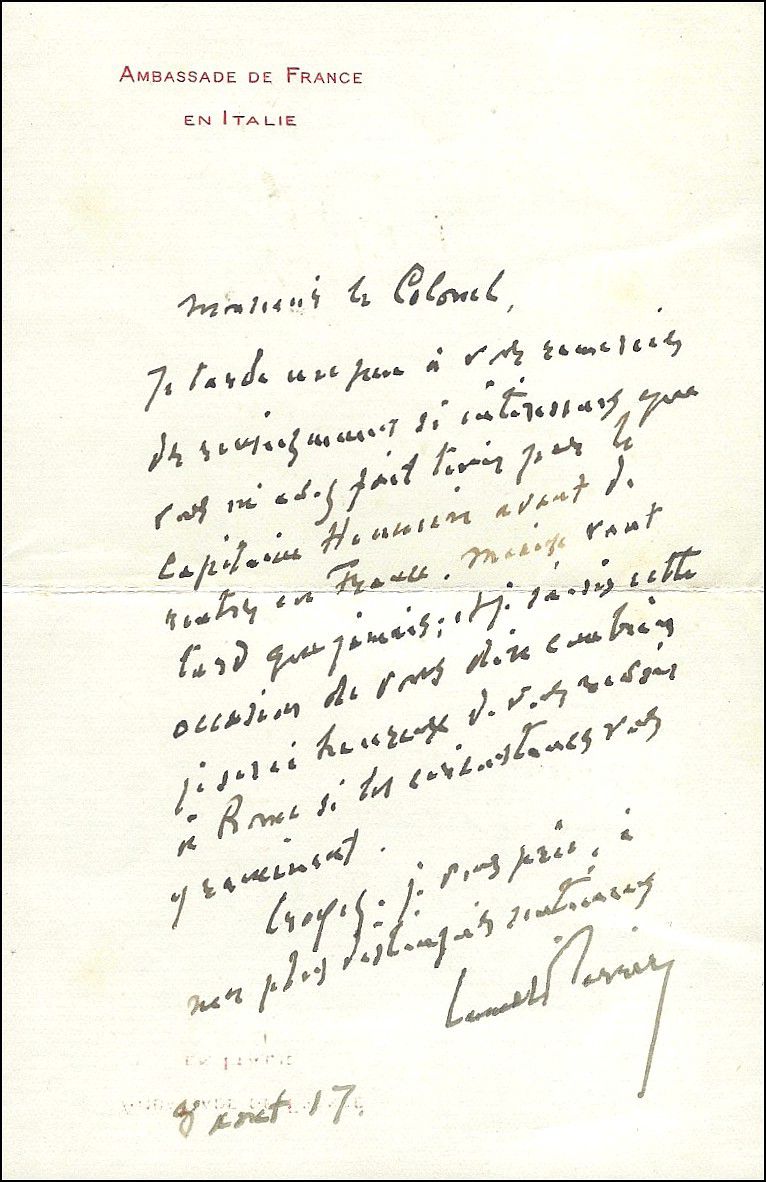 AMBASSADE DE FRANCE
EN ITALIE
Monsieur le Colonel,
Je tarde un peu à vous remercier
des renseignements si intéressants que
vous m'avez fait tenir par le
Capitaine avant de
rentrer en France. Mieux vaut
tard que jamais; et je saisis cette
occasion de vous dire combien
je serai heureux de vous revoir
à Rome si les circonstances vous
y ramènent.
Croyez, je vous prie, à
mes plus distingués sentiments
août 17.